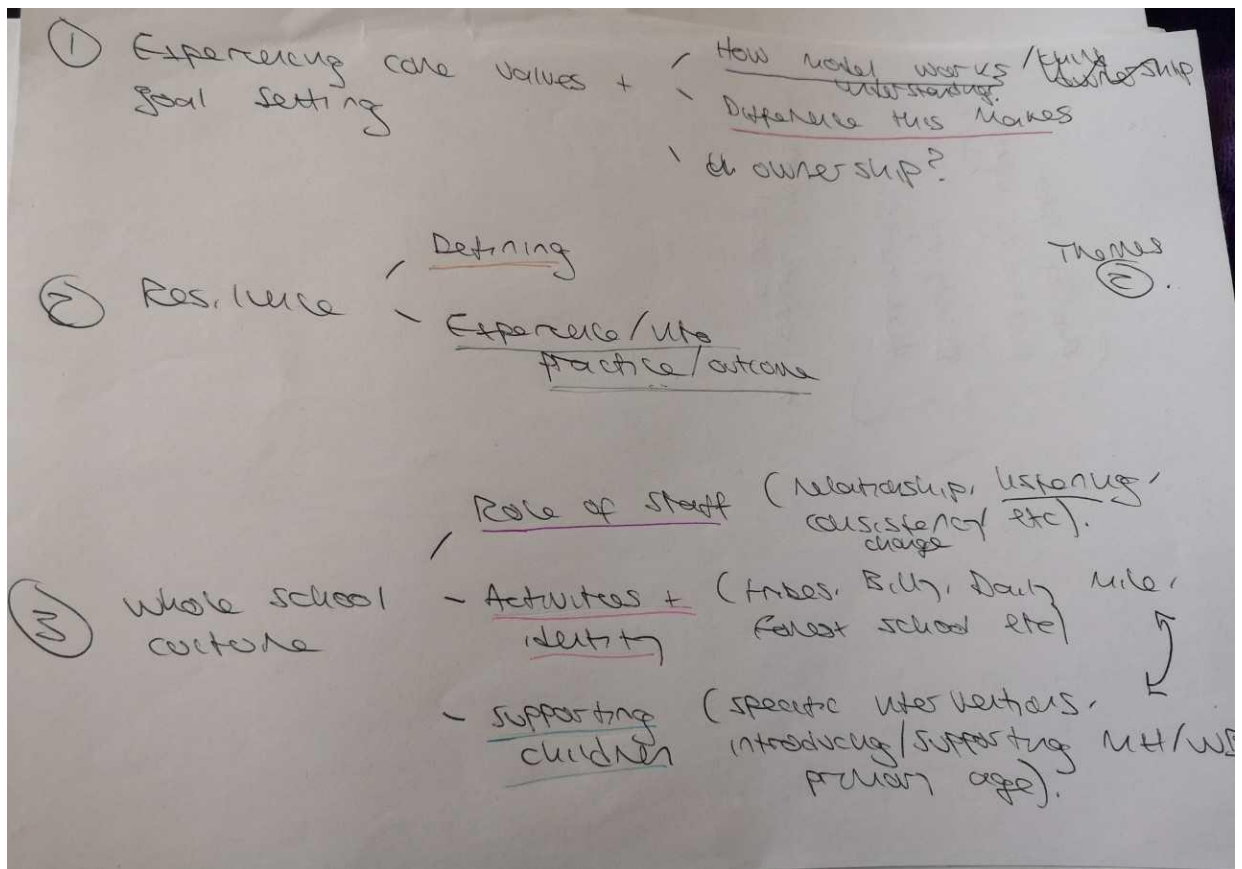 ① Experiencing core values +
goal setting
How model works /
understanding
ownership
Difference this makes
ownership?
Themes
②.
② Resilience
Defining
Experience/into
practice/outcome
③ Whole school
culture
Role of staff (relationship, listening,
consistency etc).
change
- Activities + (tribes, Billy, Daily Mile,
identity forest school etc)
- Supporting (specific interventions,
children introducing/supporting MH/WB
primary age).